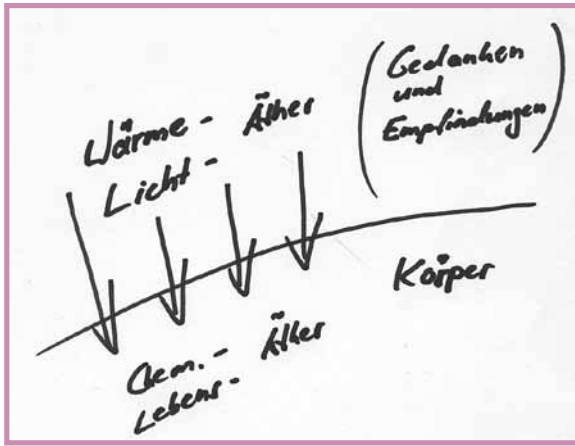 Wärme - Äther
Licht -
(Gedanken
und
Empfindungen)
Körper
Chem. - Äther
Lebens -